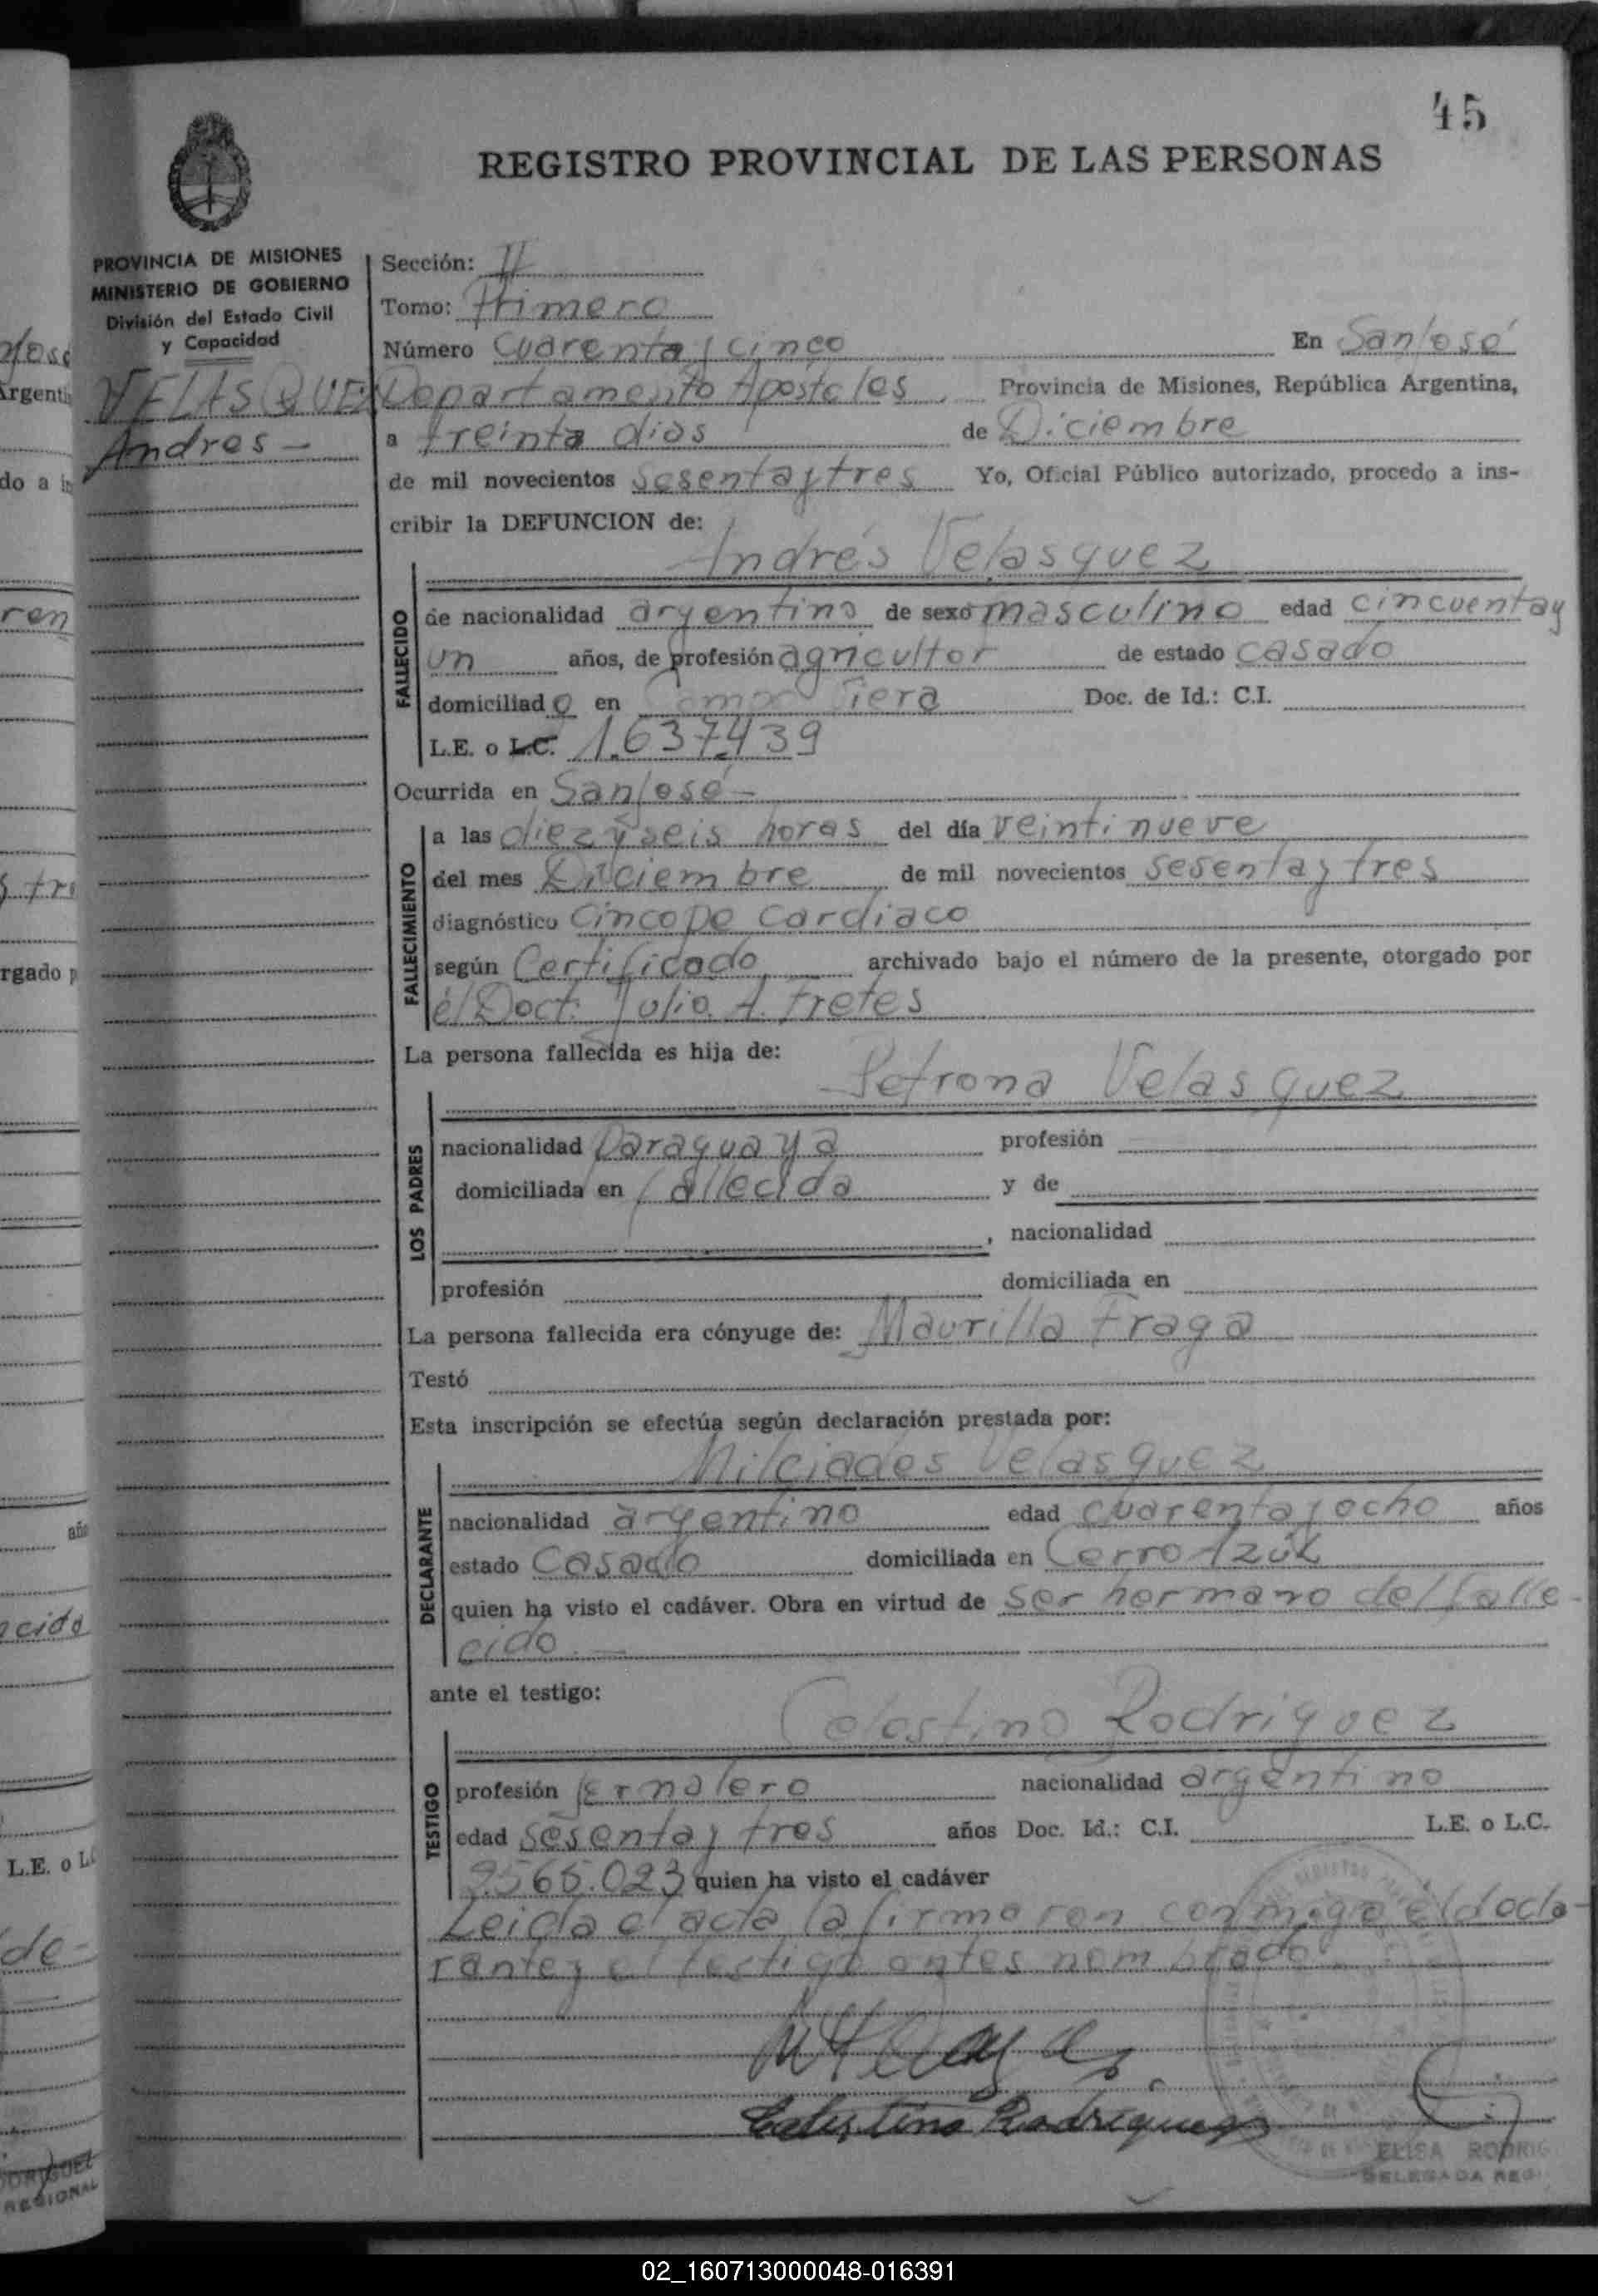 45
REGISTRO PROVINCIAL DE LAS PERSONAS
PROVINCIA DE MISIONES
MINISTERIO DE GOBIERNO
División del Estado Civil
y Capacidad
VELASQUEZ
Andres -
Sección: II
Tomo: Primero
Número Cuarenta y cinco En San José
Departamento Apostoles, Provincia de Misiones, República Argentina,
a treinta dias de Diciembre
de mil novecientos sesenta y tres Yo, Oficial Público autorizado, procedo a ins-
cribir la DEFUNCION de:
Andrés Velasquez
FALLECIDO
de nacionalidad argentino de sexo masculino edad cincuenta y
un años, de profesión agricultor de estado casado
domiciliado en Doc. de Id.: C.I.
L.E. o L.C. 1.637.439
Ocurrida en San José -
FALLECIMIENTO
a las diez y seis horas del día veintinueve
del mes Diciembre de mil novecientos sesenta y tres
diagnóstico Cincope Cardiaco
según Certificado archivado bajo el número de la presente, otorgado por
él Doct. Julio A. Fretes
La persona fallecida es hija de:
Petrona Velasquez
LOS PADRES
nacionalidad paraguaya profesión
domiciliada en fallecida y de
, nacionalidad
profesión domiciliada en
La persona fallecida era cónyuge de: Maurilla Fraga
Testó
Esta inscripción se efectúa según declaración prestada por:
Milciades Velasquez
DECLARANTE
nacionalidad argentino edad cuarenta y ocho años
estado Casado domiciliada en Cerro Azúl
quien ha visto el cadáver. Obra en virtud de ser hermano del falle-
cido. -
ante el testigo:
Celestino Rodriguez
TESTIGO
profesión jornalero nacionalidad argentino
edad sesenta y tres años Doc. Id.: C.I. L.E. o L.C.
565.023 quien ha visto el cadáver
Leida el acta la firmaron conmigo él decla-
rante y el testigo antes nombrado
Celestino Rodriguez
ELISA RODRIG
DELEGADA REGI
02_160713000048-016391